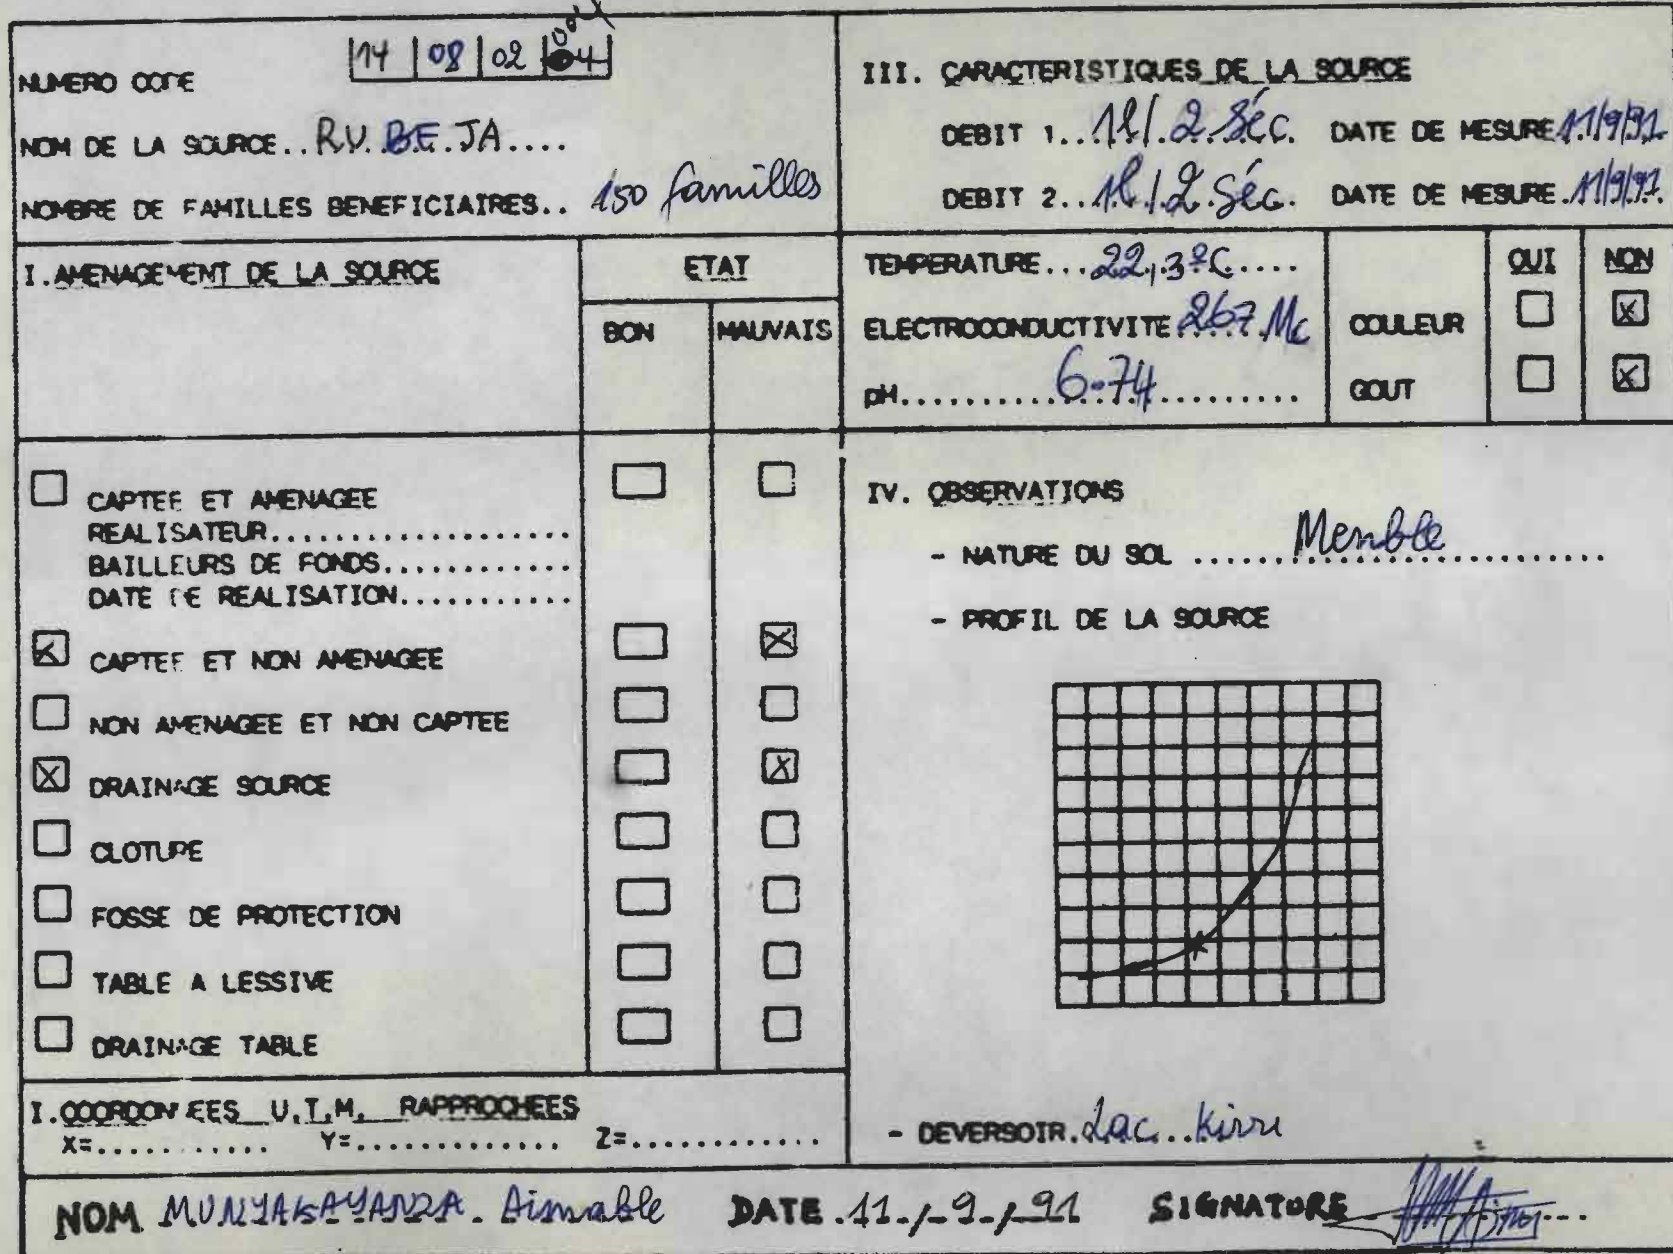 NUMERO CODE 14 08 02 04
004
NOM DE LA SOURCE..RU.BE.JA....
NOMBRE DE FAMILLES BENEFICIAIRES.. 150 familles
I.AMENAGEMENT DE LA SOURCE
ETAT
BON MAUVAIS
CAPTEE ET AMENAGEE
REALISATEUR...................
BAILLEURS DE FONDS............
DATE DE REALISATION...........
CAPTEE ET NON AMENAGEE X
NON AMENAGEE ET NON CAPTEE
X DRAINAGE SOURCE X
CLOTURE
FOSSE DE PROTECTION
TABLE A LESSIVE
DRAINAGE TABLE
I.COORDONNEES U.T.M. RAPPROCHEES
X=........... Y=............. Z=............
III. CARACTERISTIQUES DE LA SOURCE
DEBIT 1...1l/.2.Séc. DATE DE MESURE 11/9/91
DEBIT 2...1l./.2.Séc. DATE DE MESURE.11/9/91.
TEMPERATURE...22,3°C....
ELECTROCONDUCTIVITE 267
pH..........6.74.........
OUI NON
COULEUR X
GOUT X
IV. OBSERVATIONS
- NATURE DU SOL ...... Menble
- PROFIL DE LA SOURCE
- DEVERSOIR.Lac..Kivu
NOM MUNYAKAYANZA. Aimable DATE.11./.9./.91 SIGNATURE